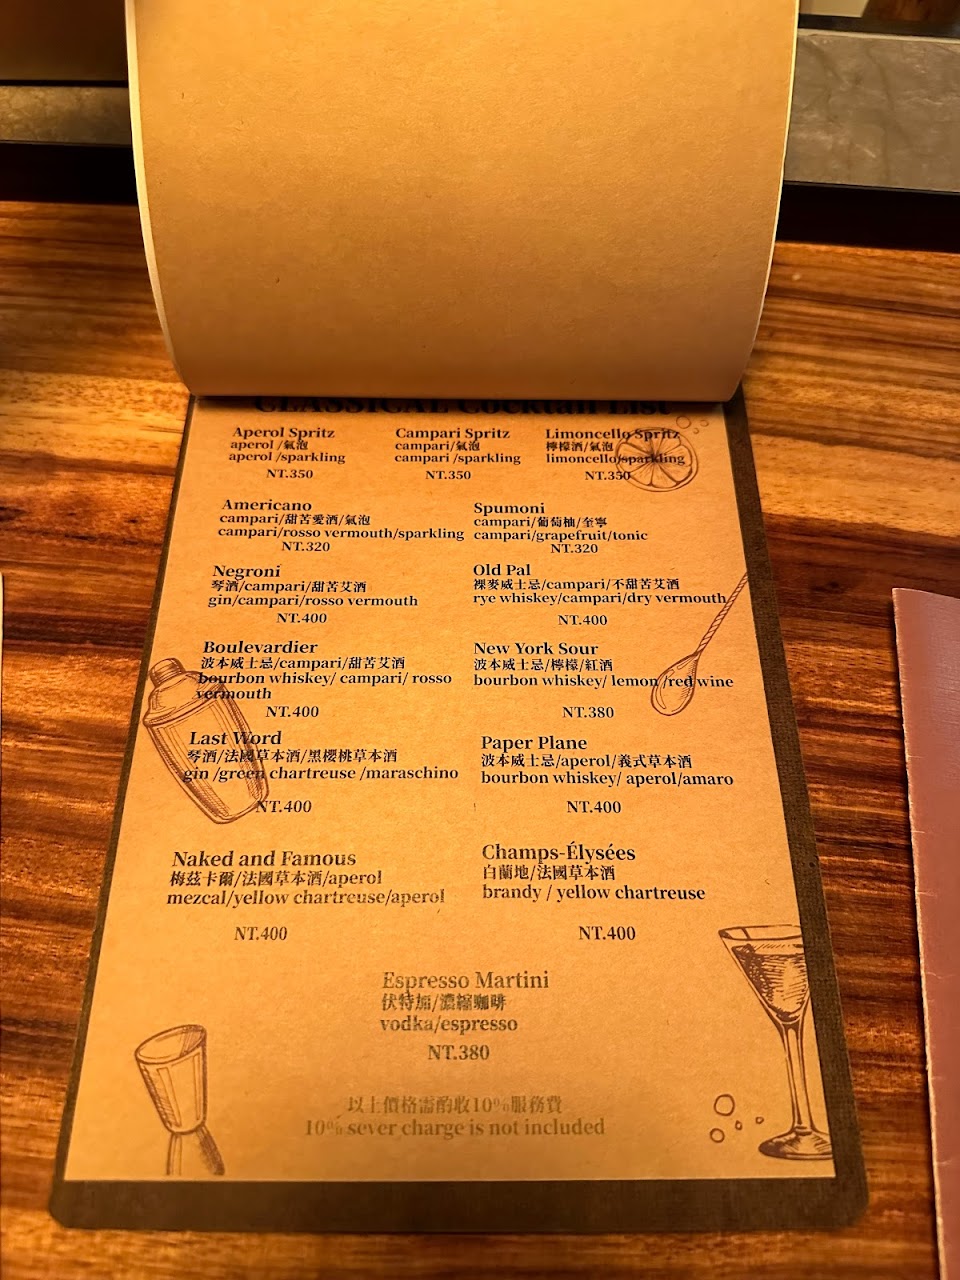 CLASSICAL Cocktail List
Aperol Spritz
aperol /氣泡
aperol /sparkling
NT.350
Campari Spritz
campari/氣泡
campari /sparkling
NT.350
Limoncello Spritz
檸檬酒/氣泡
limoncello/sparkling
NT.350
Americano
campari/甜苦愛酒/氣泡
campari/rosso vermouth/sparkling
NT.320
Spumoni
campari/葡萄柚/奎寧
campari/grapefruit/tonic
NT.320
Negroni
琴酒/campari/甜苦艾酒
gin/campari/rosso vermouth
NT.400
Old Pal
裸麥威士忌/campari/不甜苦艾酒
rye whiskey/campari/dry vermouth
NT.400
Boulevardier
波本威士忌/campari/甜苦艾酒
bourbon whiskey/ campari/ rosso
vermouth
NT.400
New York Sour
波本威士忌/檸檬/紅酒
bourbon whiskey/ lemon /red wine
NT.380
Last Word
琴酒/法國草本酒/黑櫻桃草本酒
gin /green chartreuse /maraschino
NT.400
Paper Plane
波本威士忌/aperol/義式草本酒
bourbon whiskey/ aperol/amaro
NT.400
Naked and Famous
梅茲卡爾/法國草本酒/aperol
mezcal/yellow chartreuse/aperol
NT.400
Champs-Élysées
白蘭地/法國草本酒
brandy / yellow chartreuse
NT.400
Espresso Martini
伏特加/濃縮咖啡
vodka/espresso
NT.380
以上價格需酌收10%服務費
10% sever charge is not included